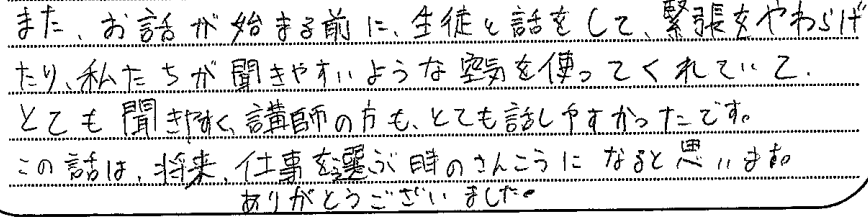 また、お話が始まる前に、生徒と話をして、緊張をやわらげ
たり、私たちが聞きやすいような空気を使ってくれていて、
とても聞きやすく、講師の方も、とても話しやすかったです。
この話は、将来、仕事を選ぶ時のさんこうになると思います。
ありがとうございました。